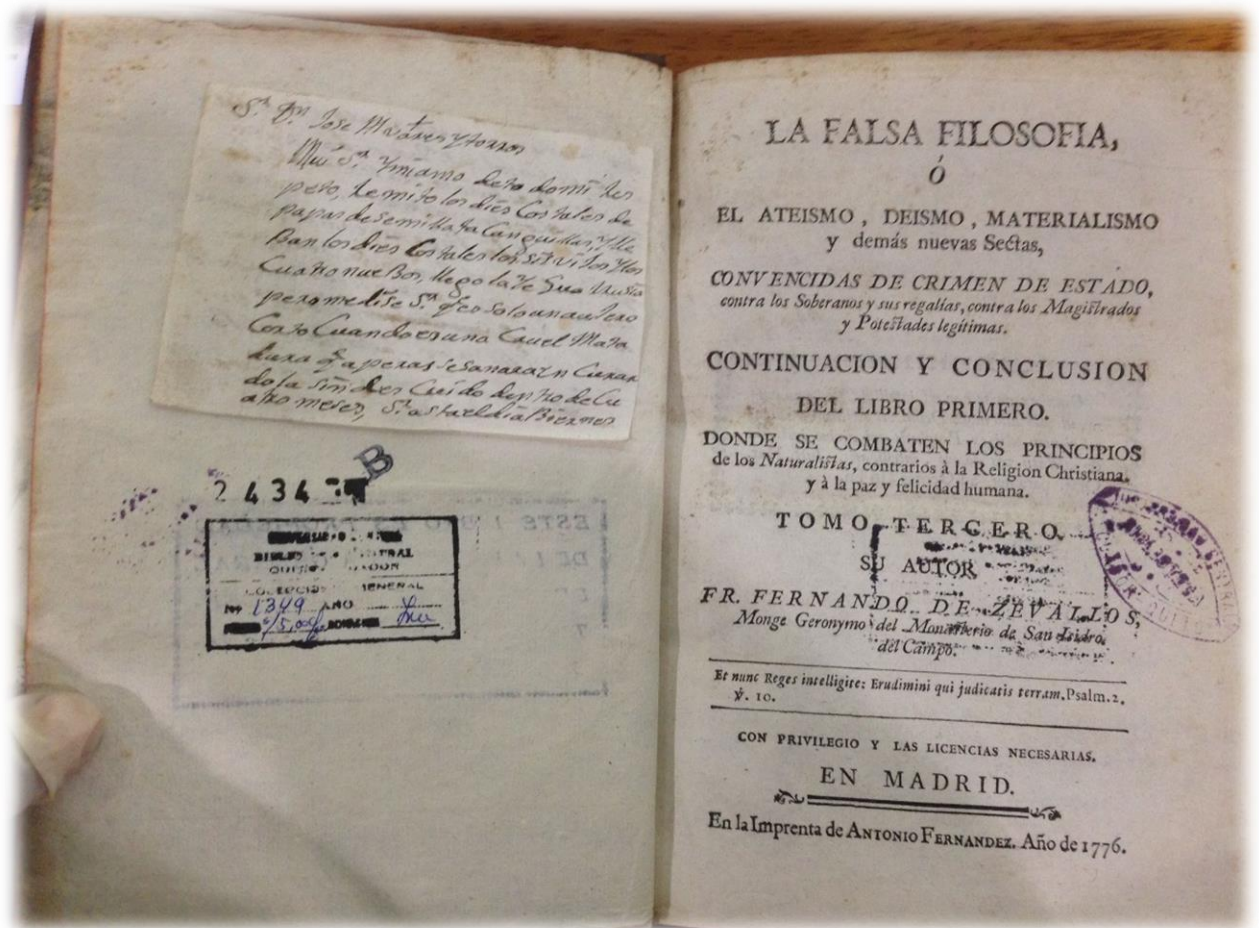 Sr. Dn. Jose
Mui Sr. y mi amo de todo mi res
peto, Remito los dies Costales de
papas de semilla
ban los dies Costales
Cuatro nuebos, llego la
pero me dise Sr. qe es solo un
Corto Cuando es una Cruel Mata
dura qe apenas se sanara en Curan
do la sin des Cuido dentro de Cu
atro meses, Sr. asta el dia Biernes
B
2 4 3 4
COLECCION GENERAL
No 1349 AÑO
LA FALSA FILOSOFIA,
Ó
EL ATEISMO, DEISMO, MATERIALISMO
y demás nuevas Sectas,
CONVENCIDAS DE CRIMEN DE ESTADO,
contra los Soberanos y sus regalías, contra los Magistrados
y Potestades legítimas.
CONTINUACION Y CONCLUSION
DEL LIBRO PRIMERO.
DONDE SE COMBATEN LOS PRINCIPIOS
de los Naturalistas, contrarios à la Religion Christiana,
y à la paz y felicidad humana.
TOMO TERCERO.
SU AUTOR
FR. FERNANDO DE ZEVALLOS,
Monge Geronymo del Monasterio de San Isidro
del Campo.
Et nunc Reges intelligite: Erudimini qui judicatis terram. Psalm. 2.
℣. 10.
CON PRIVILEGIO Y LAS LICENCIAS NECESARIAS.
EN MADRID.
En la Imprenta de ANTONIO FERNANDEZ. Año de 1776.